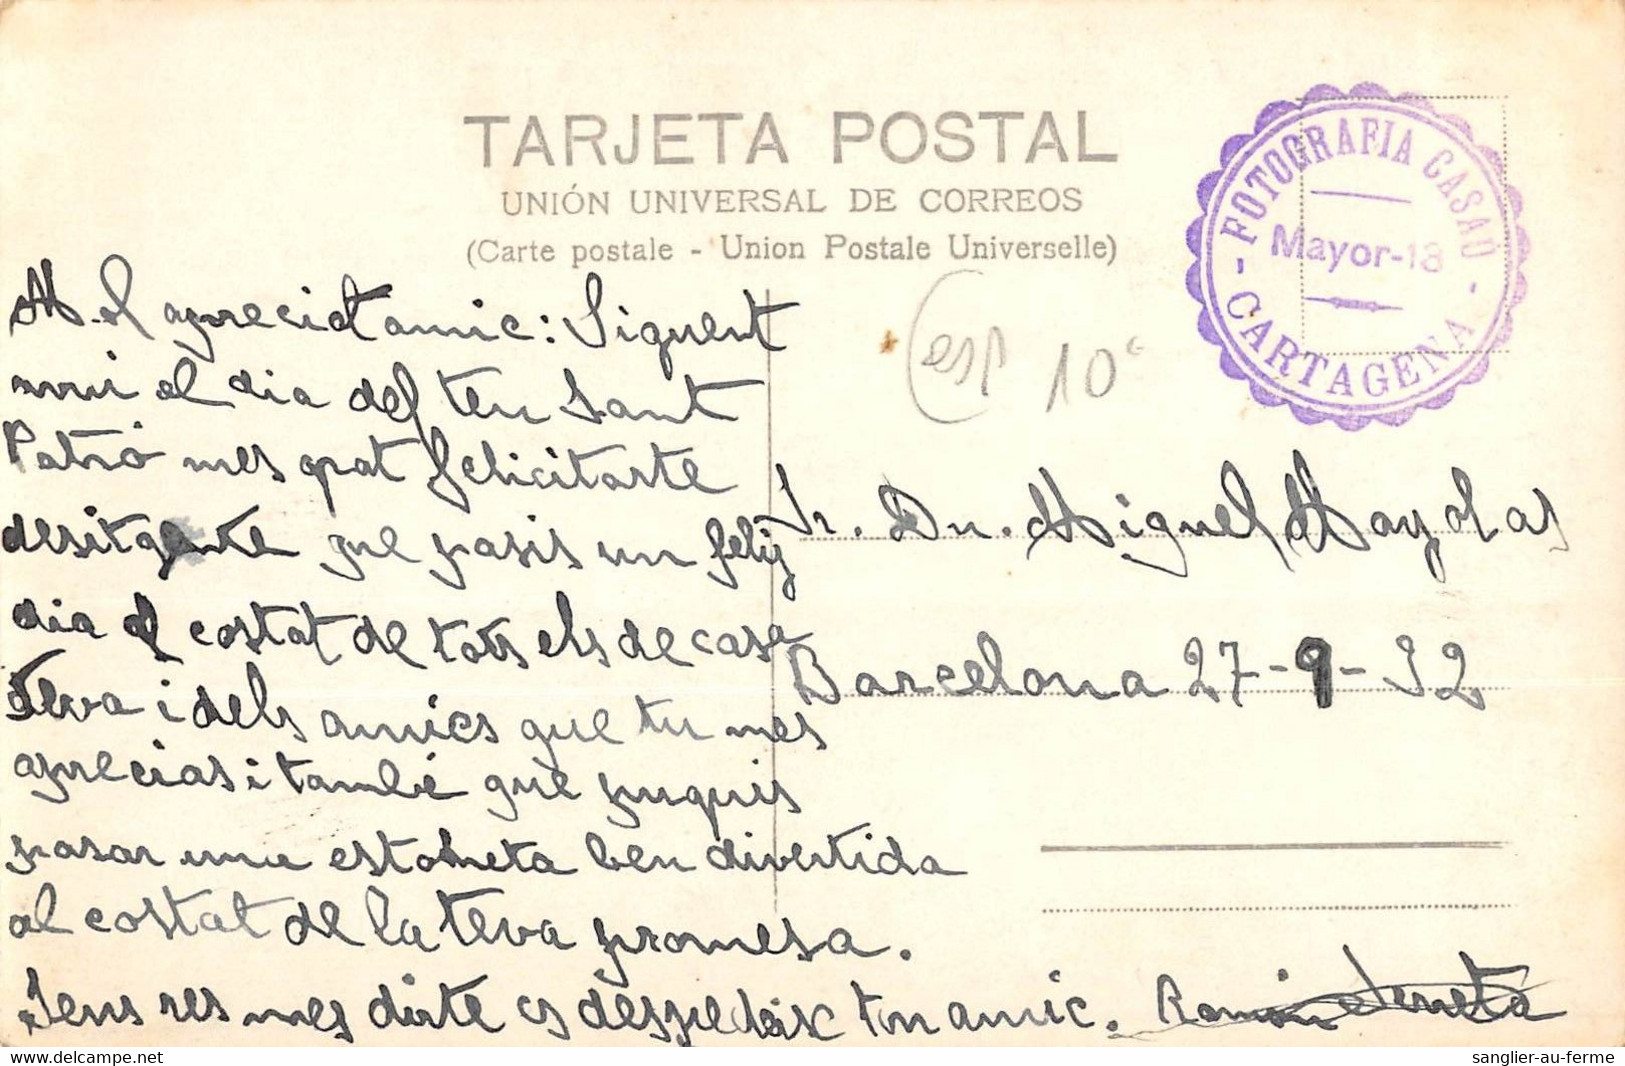 TARJETA POSTAL
UNIÓN UNIVERSAL DE CORREOS
(Carte postale - Union Postale Universelle)
- FOTOGRAFIA CASAÚ -
Mayor-18
CARTAGENA
(esp 10€
Al apreciat amic: Siguent
avui el dia del teu Sant
Patró mes grat felicitarte
desitgante que pasis un feliç
dia al costat de tots els de casa
teva i dels amics que tu mes
aprecias i també que puguis
pasar una estoneta ben divertida
al costat de la teva promesa.
Sens res mes dirte es despedeix ton amic. Ramon
Sr. Dn. Miguel Mayolas
Barcelona 27-9-32
sanglier-au-ferme